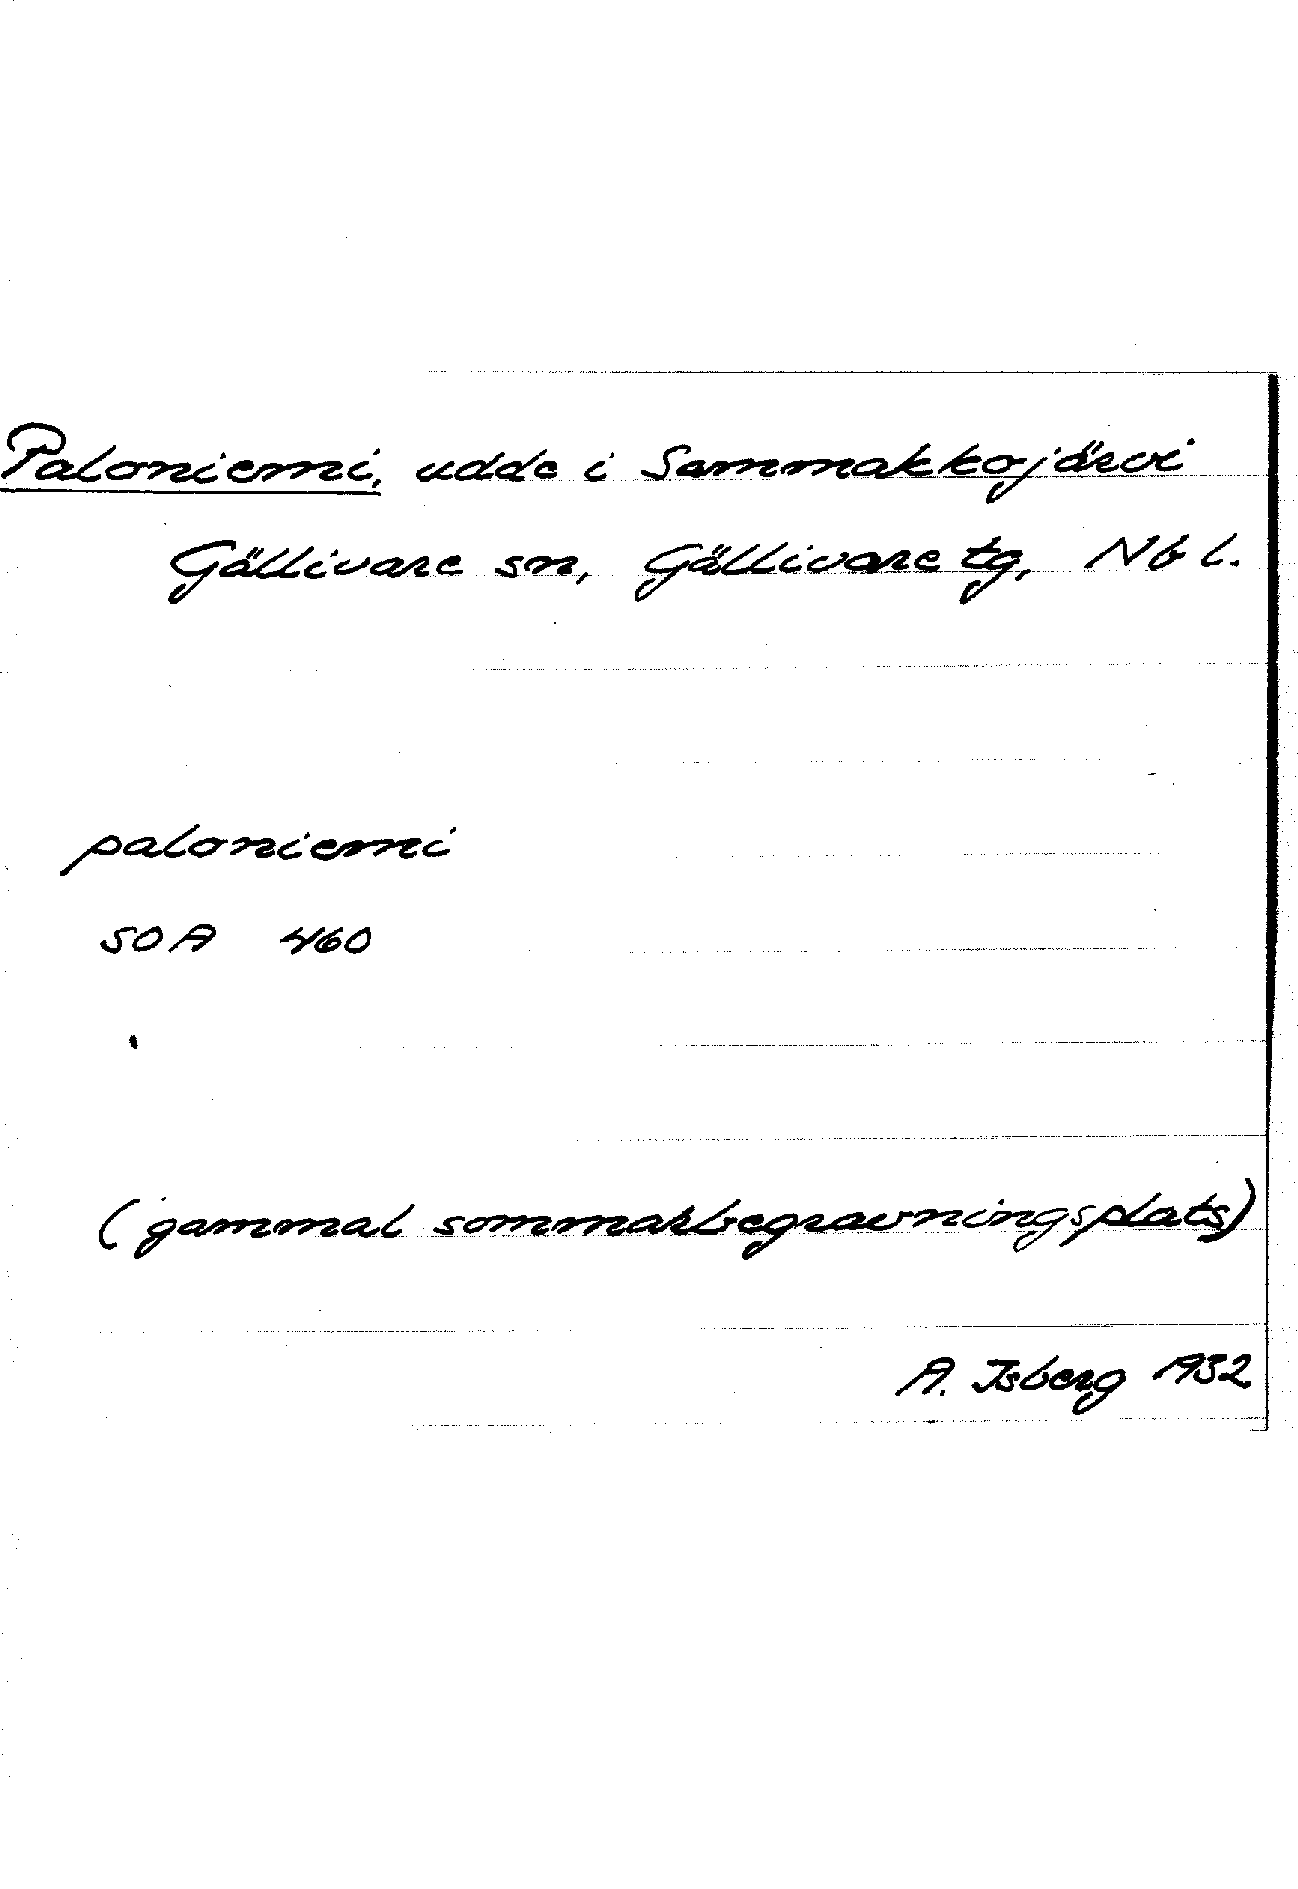 Paloniemi, udde i Sammakkojärvi
Gällivare sn, Gällivare tg, Nb l.
paloniemi
SOA 460
(gammal sommarbegravningsplats)
A. Isberg 1932